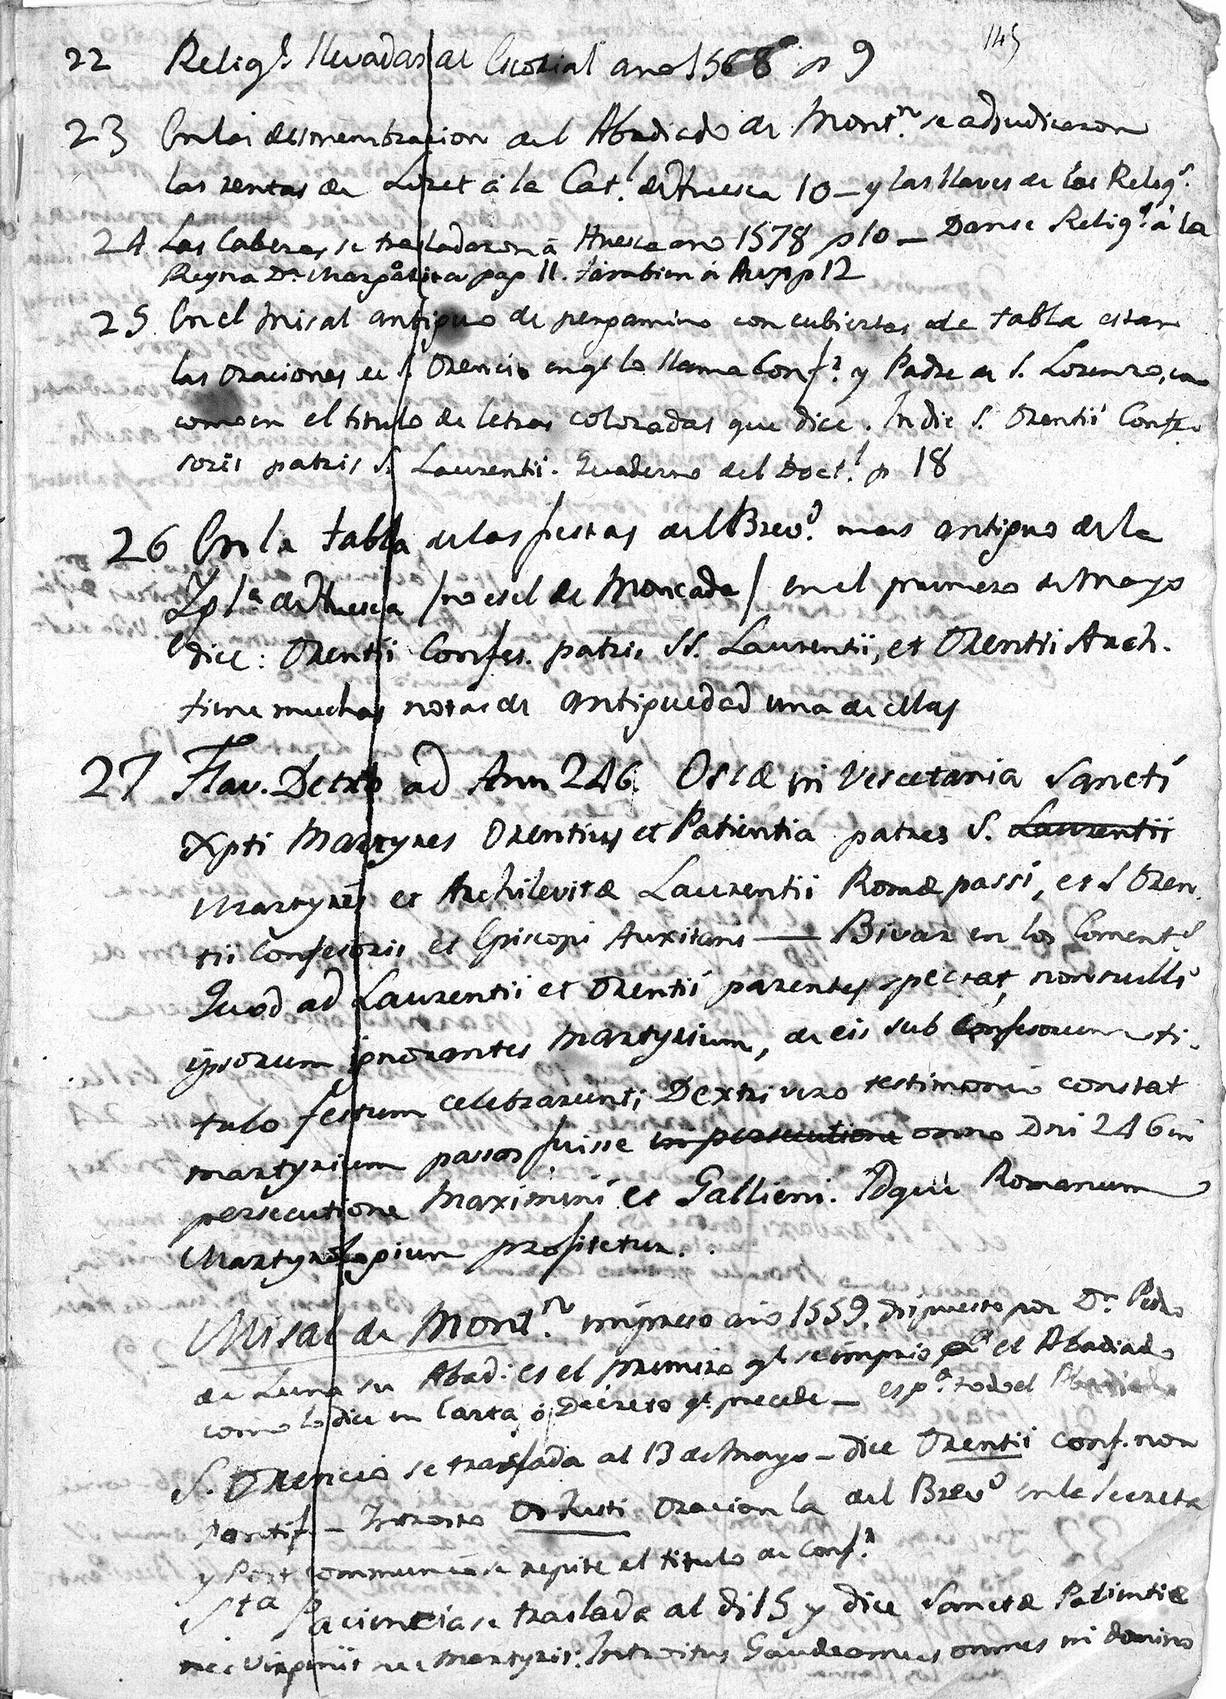 145
22 Relig.s llevadas al Escorial año 1568 p 9
23 En la desmembracion del Abadiado de Mont.n se adjudicaron
las rentas de Loret á la Cat.l de Huesca 10 — y las llaves de las Relig.s
24 Las Cabezas se trasladaron á Huesca año 1578 p 10 — Danse Relig.s á la
Reyna D.a Margarita pag 11. tambien á Aux p 12
25 En el Misal antiguo de pergamino con cubiertas de tabla estan
las oraciones de S. Orencio en q.e lo llama Conf.r y Padre de S. Lorenzo,
como en el titulo de letras coloradas que dice. In die S. Orentii Confes-
soris patris S. Laurentii. Quaderno del Doct.l p 18
26 En la tabla de las fiestas del Brev.o mas antiguo de la
Igl.a de Huesca / no es el de Moncada / en el primero de Mayo
dice: Orentii Confes. patris SS. Laurentii, et Orentii Arch.
tiene muchas notas de antiguedad una de ellas
27 Flav. Dextro ad Ann 246. Oscæ in Vescetania Sancti
Xpti Martyres Orentius et Patientia patres S. Laurentii
Martyris et Archilevitæ Laurentii Romæ passi, et S Oren
tii Confesoris et Episcopi Auxitani — Bivar en los Coment.s
Quod ad Laurentii et Orentii parentes spectat, nonnulli
ipsorum ignorantes Martyrium, de eis sub Confesorum ti-
tulo festum celebrarunt; Dextri vero testimonio constat
martyrium passos fuisse in persecutione anno Dni 246 in
persecutione Maximini et Gallieni. Idque Romanum
Martyrologium profitetur.
Misal de Mont.n impreso año 1559. dispuesto por D.n Pedro
de Luna su Abad: es el primero q.e se imprio p.a el Abadiado
como lo dice en Carta ó Decreto q.e precede — es p.a todo el Abadiado
S. Orencio se traslada al 13 de Mayo — dice Orentii conf. non
pontif. — Introito Os Justi Oracion la del Brev.o en la Secreta
y Post communio se repite el titulo de Conf.r
Sta Paciencia se traslada al di 15 y dice Sanctæ Patientiæ
nec virginis nec martyris. Introitus Gaudeamus omnes in domino